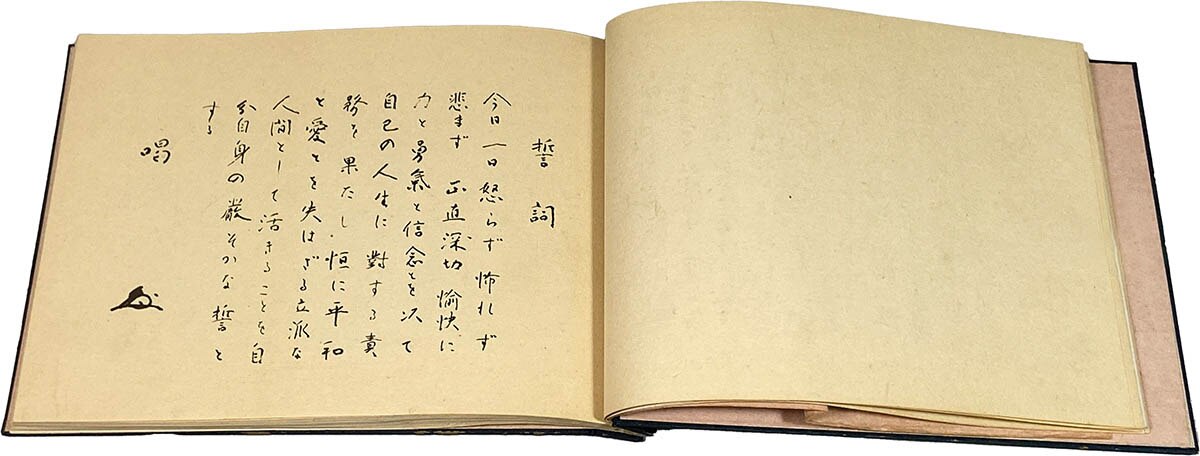 誓詞
今日一日 怒らず 怖れず
悲まず 正直 深切 愉快に
力と勇氣と信念とを以て
自己の人生に對する責
務を果たし 恒に平和
と愛とを失はざる立派な
人間として活きることを自
分自身の厳そかな誓と
する
唱